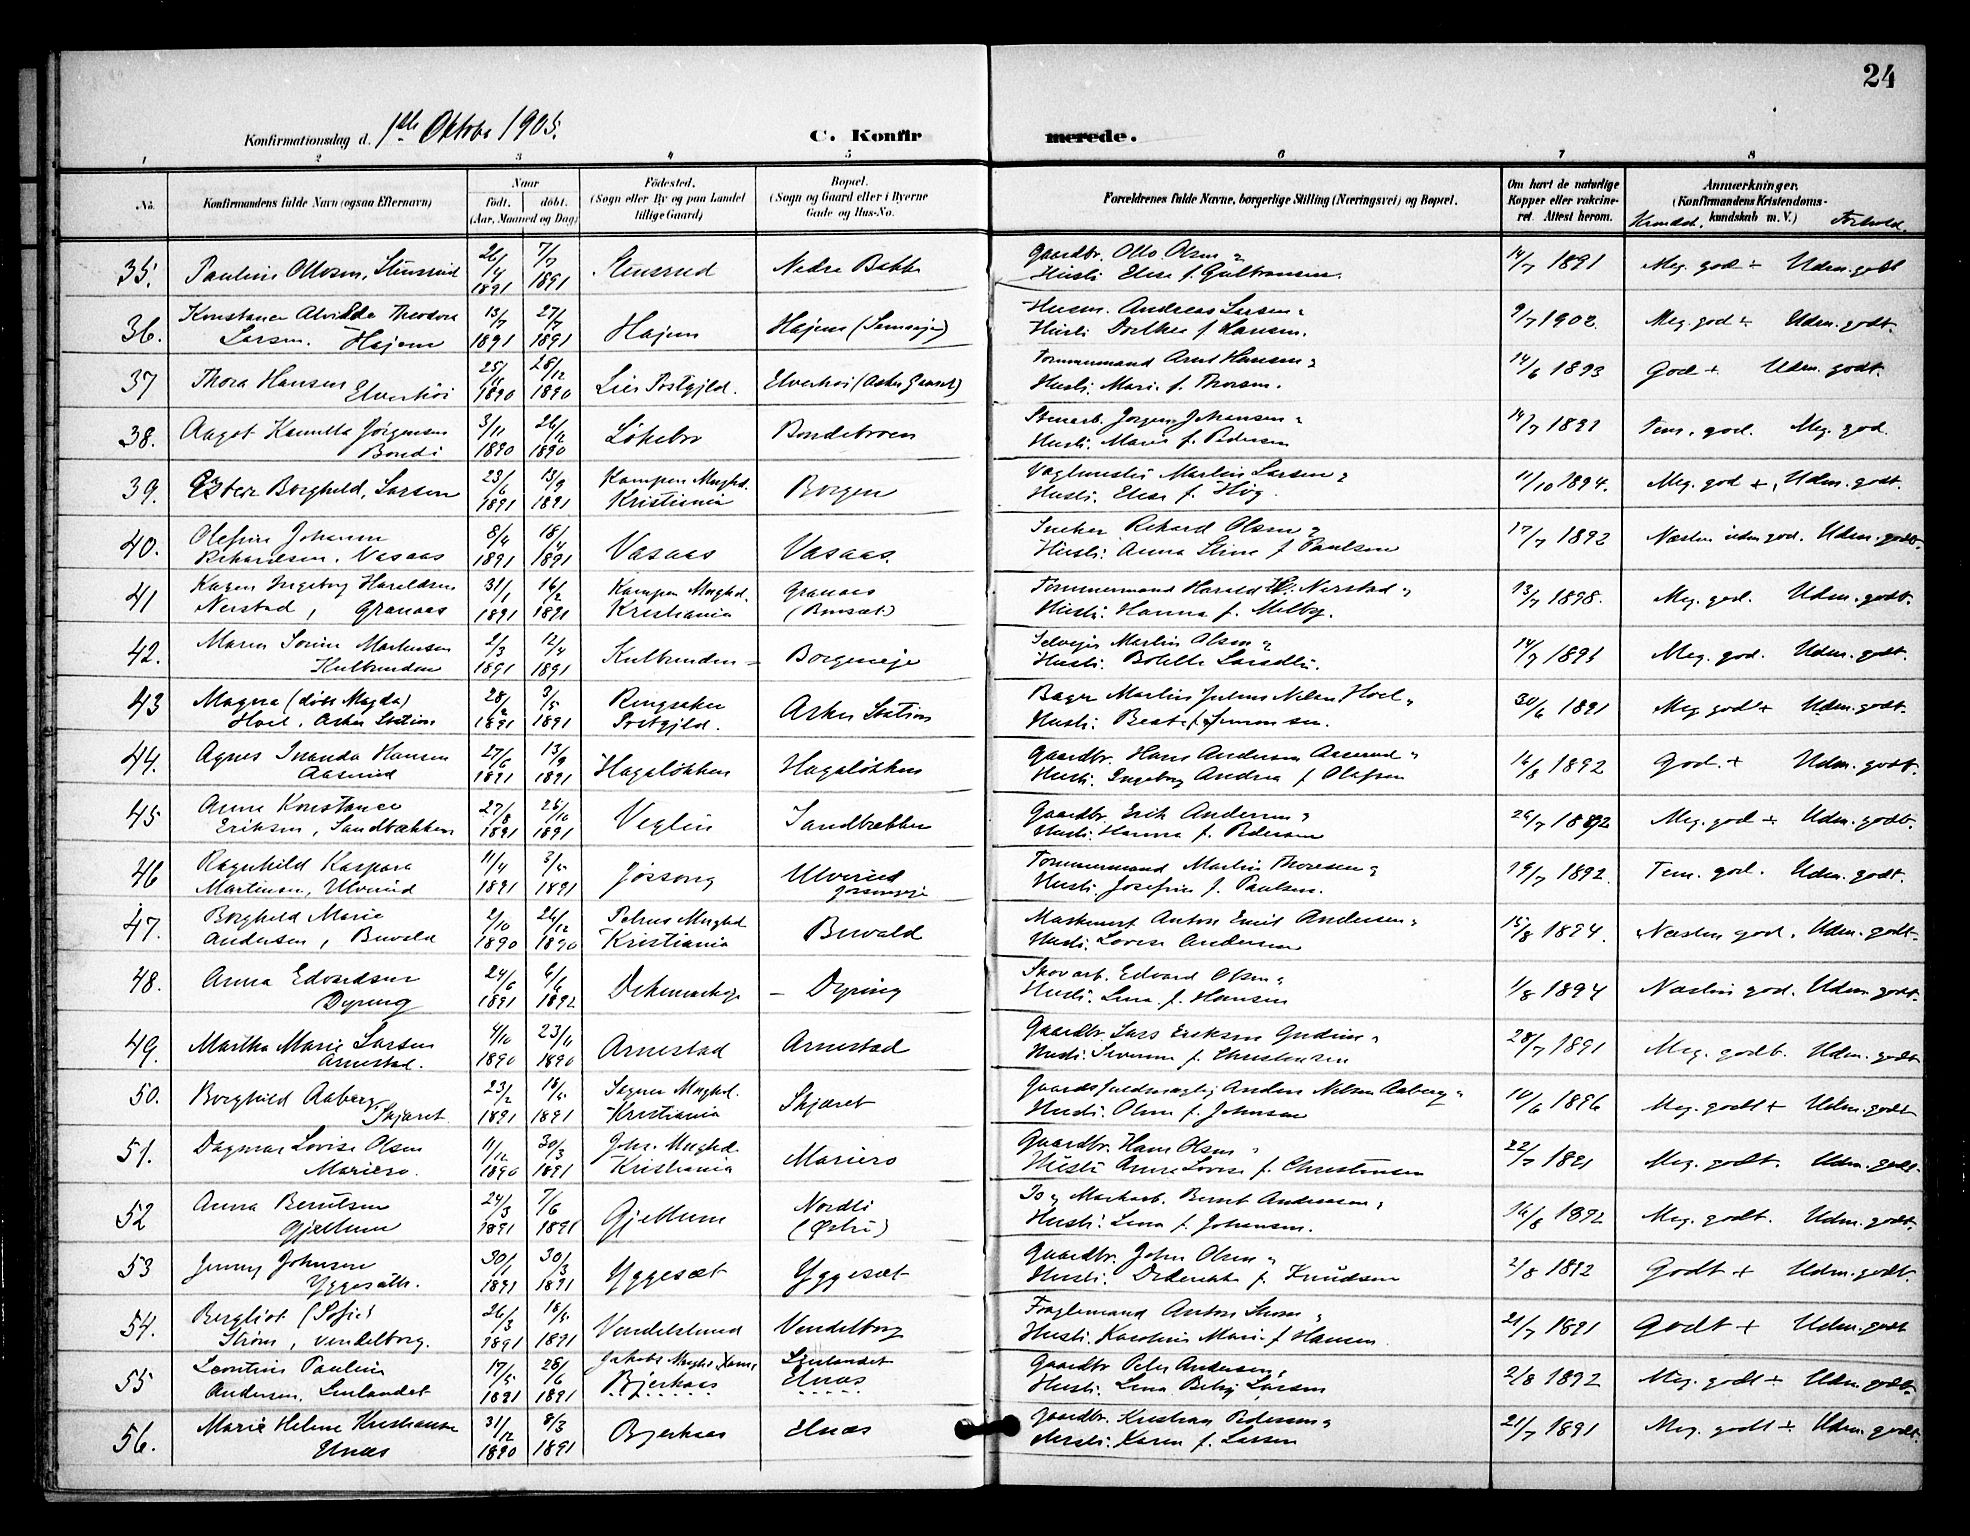 24
Konfirmationsdag d. 1ste Oktober 1905.
C. Konfirmerede.
1 2 3 4 5 6 7 8
No.
Konfirmandens fulde Navn (ogsaa Efternavn)
Naar
født. døbt.
(Aar, Maaned og Dag)
Fødested.
(Sogn eller By og paa Landet
tillige Gaard)
Bopæl.
(Sogn og Gaard eller i Byerne
Gade og Hus-No.
Forældrenes fulde Navne, borgerlige Stilling (Næringsvei) og Bopæl.
Om havt de naturlige
Kopper eller vakcine-
ret. Attest herom.
Anmærkninger.
(Konfirmandens Kristendoms-
kundskab m. V.)
Kundsk. Forhold.
35. Pauline Ottosen, Stensrud 26/4 1891 7/7 1891 Stensrud Nedre Bakke
Gaardbr. Otto Olsen
Hustr. Elise f. Gulbransen. 14/7 1891 Meg. god + Udm. godt
36. Konstance Alvilda Theodora
Larsen. Hajem 13/7 1891 27/7 1891 Hajem Hajem
Husm. Andreas Larsen
Hustr. Dorthea f. Hansen. 9/7 1902. Meg. god + Udm. godt.
37 Thora Hansen
Elverhöi 1890 1890 Lier Prstgjld. Elverhöi
Tömmermand Arnt Hansen
Hustr. Mari f. Thorsen. 14/6 1893 God + Udm. godt.
38. Aagot Kamilla Jörgensen
Bondi 3/11 1890 26/12 1890 Lökebo Bondebroen
Stenarb. Jörgen Johansen
Hustr. Marie f. Pedersen Tem. god. Meg. god.
39. Ester Borghild, Larsen 23/6 1891 13/9 1891 Kampen Mnghd.
Kristiania Borgen
Vagtmester Martin Larsen
Hustr. Elise f. Høg. 11/10 1894. Meg. god +, Udm. godt.
40. Olefine Johanne
Rikardsen. Vasaas 8/4 1891 18/4 1891 Vasaas Vasaas.
Snekker Rikard Olsen
Hustr. Anna Stine f. Paulsen 17/7 1892 Næsten udm god. Udm. godt.
41 Karen Ingeborg Haraldsen
Nerstad, Granaas 31/1 1891 16/2 1891 Kampen Mnghd.
Kristiania Granaas
Tömmermand Harald H. Nerstad
Hustr. Hanna f. Melby. 13/7 1898. Meg. god. Udm. godt.
42. Maren Sörine Martinsen
Kulbunden 2/3 1891 12/4 1891 Kulbunden Borgeneje
Selvejer Martin Olsen
Hustr. Bolette Larsdtr. Meg. god. Udm. godt.
43 Magna (döbt Magda)
Hoel, Asker Station 1891 3/5 1891 Ringsaker
Prstgjld. Asker Station
Bager Martin Julius Nilsen Hoel
Hustr. Beate f. Simonsen. 30/6 1891 Meg. godt + Udm. godt.
44. Agnes Inanda Hansen
Aaserud 27/6 1891 13/9 1891 Hagalökken Hagalökken
Gaardbr. Hans Andersen Aaserud
Hustr. Ingeborg Andrea f. Olafsen 16/8 1892 God. + Udm. godt.
45 Anna Konstance
Eriksen, Sandbækken 27/8 1891 25/10 1891 Veglin Sandbækken
Gaardbr. Erik Andersen
Hustr. Hanna f. Pedersen 1892 Meg. god + Udm. godt.
46 Ragnhild Kaspara
Martinsen, Ulverud 11/4 1891 1891 Jössong Ulverud
Jössongeje
Tömmermand Martin Thoresen
Hustr. Josefine f. Paulsen. 19/7 1892. Tem. god. Udm. godt.
47. Borghild Marie
Andersen, Buvald 2/10 1890 26/12 1890 Petrus Mnghd
Kristiania Buvald
Anton Emil Andersen
Hustr. Lovise Andersen 15/8 1894. Næsten god. Udm. godt.
48. Anna Edvardsen
Dyring 24/6 1891 6/6 1892 Dyring
Skovarb. Edvard Olsen
Hustr. Lina f. Hansen 1/8 1894 Næsten god. Udm. godt.
49. Martha Marie Larsen
Arnestad. 4/10 1890 23/11 1890 Arnestad Arnestad
Gaardbr. Lars Eriksen Gudim
Hustr. Severine f. Christensen 28/7 1891 Meg. godt. Udm. godt
50. Borghild Aaberg,
Skjæret. 23/2 1891 1891 Sagene Mnghd.
Kristiania Skjæret
Gaardsfuldmægtig Anders Nilsen Aaberg
Hustr. Oline f. Johnsen 1896 Meg. godt + Udm. godt
51. Dagmar Lovise Olsen
Mariero. 11/12 1890 30/3 1891 Joh. Mnghd.
Kristiania Mariero
Gaardbr. Hans Olsen
Hustr. Anne Lovise f. Christensen 22/7 1891 Meg. godt. Udm. godt.
52 Anna Berntsen
Gjellum 24/3 1891 7/6 1891 Gjellum Nordli
(Østre)
Bernt Andersen
Hustr. Lina f. Johansen. 16/8 1892 Meg. godt. Udm. godt.
53 Jenny Johnsen
Yggesæth. 30/1 1891 30/3 1891 Yggesæt Yggesæt
Gaardbr. John Olsen
Hustr. Dederikke f. Knudsen 2/8 1892 Godt + Udm. godt.
54. Bergliot (Sofie)
Ström, Vendelborg. 26/3 1891 1891 Vendelslund Vendelborg
Anton Ström
Hustr. Karoline Marie f. Hansen. 21/7 1891 Godt + Udm. godt
55 Leontine Pauline
Andersen, Linlandet 17/5 1891 28/6 1891 Jakobs Mnghd.
Bjerkaas Linlandet
Elnæs
Gaardbr. Peter Andersen
Hustr. Lina Betzy Larsen 2/8 1892 Meg. godt + Udm. godt.
56. Marie Helene Kristiansen
Elnæs 31/12 1890 8/3 1891 Bjerkaas Elnæs
Gaardbr. Kristian Pedersen
Hustr. Karen f. Larsen 21/7 1891 Meg. godt + Udm. godt.